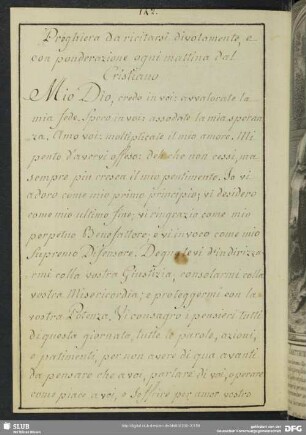 Preghiera da ricitarsi divotamente, e
con ponderazione ogni mattina dal
Cristiano
Mio Dio, credo in voi: avvalorate la
mia fede. Spero in voi: assodate la mia speran
za. Amo voi: moltiplicate il mio amore. Mi
pento d'avervi offeso: deh che non cessi, ma
sempre più cresca il mio pentimento. Io vi
adoro come mio primo principio; vi desidero
come mio ultimo fine; vi ringrazio come mio
perpetuo Benefattore; e vi invoco come mio
Supremo Difensore. Degnatevi d'indirizzar
mi colla vostra Giustizia, consolarmi colla
vostra Misericordia; e proteggermi con la
vostra Potenza. Vi consagro i pensieri tutti
di questa giornata, tutte le parole, azioni,
e patimenti, per non avere di qua avanti
da pensare che a voi, parlare di voi, operare
come piace a voi, e soffrire per amor vostro
SLUB
DFG